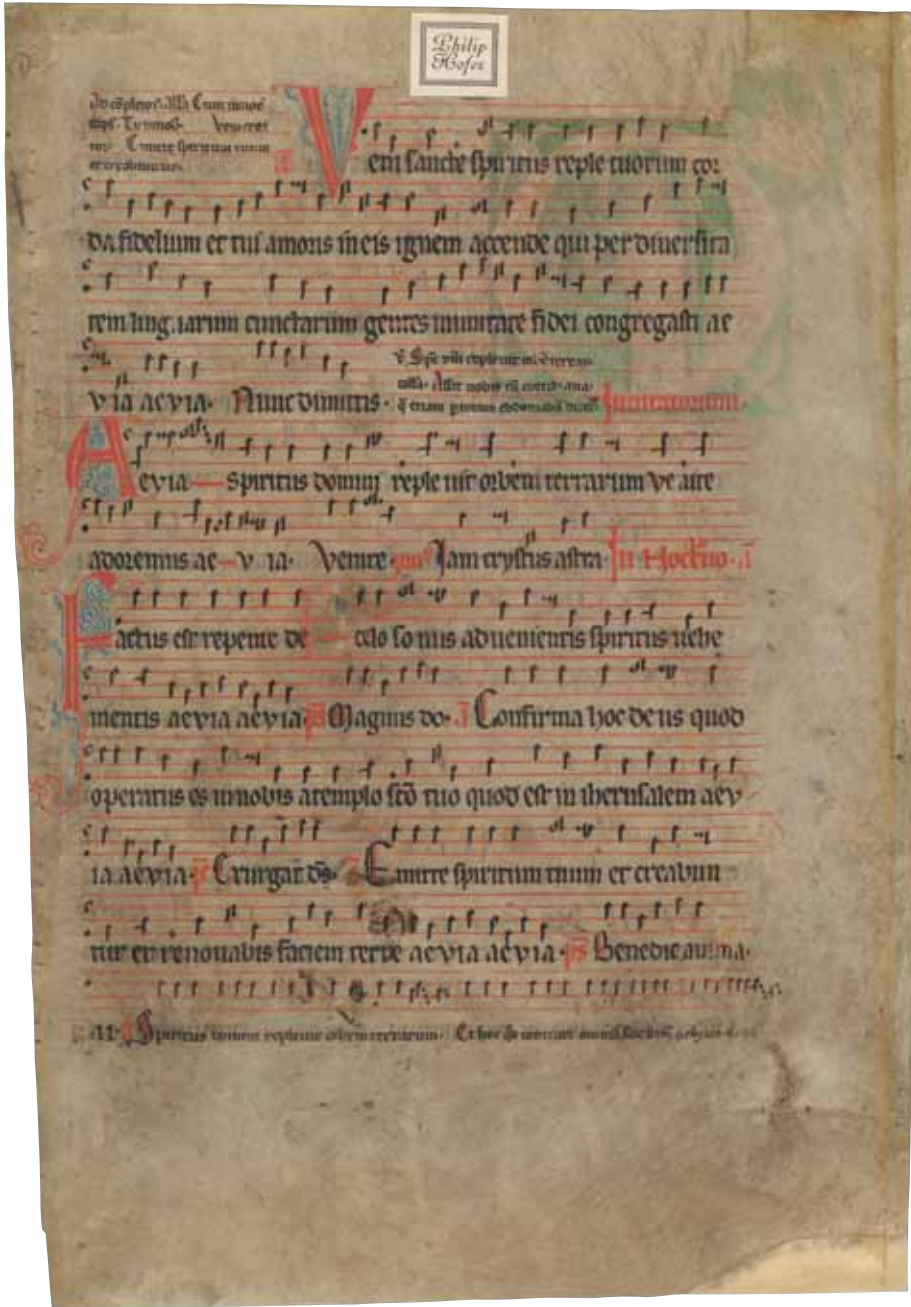 Philip
Hofer
Ad Cum
Veni creat
Emitte spiritum tuum
et creabuntur
Veni sancte spiritus reple tuorum cor
da fidelium et tui amoris in eis ignem accende qui per diuersita
tem linguarum cunctarum gentes in unitate fidei congregasti ae
via aevia. Nunc dimittis. Invitatorium.
Aevia spiritus domini repleuit orbem terrarum venite
adoremus ae v ia. Venite. Iam cristus astra. In Nocturno. a
Factus est repente de celo sonus aduenientis spiritus uehe
mentis aevia aevia ps Magnus do. a Confirma hoc deus quod
operatus es in nobis a templo sco tuo quod est in iherusalem aev
ia aevia. ps Exurgat ds. a Emitte spiritum tuum et creabun
tur et renouabis faciem terre aevia aevia. ps Benedic anima.
Spiritus domini repleuit orbem terrarum. Et hoc